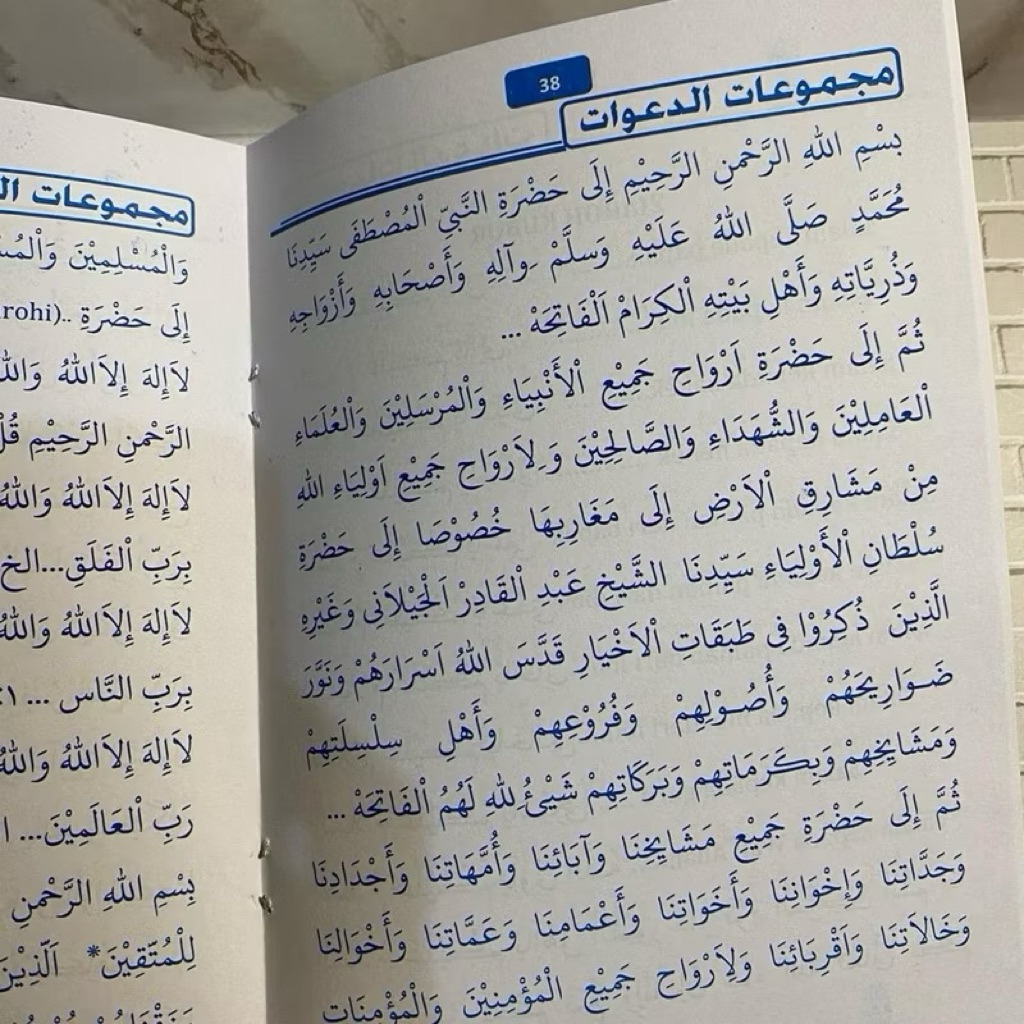 38
مجموعات الدعوات
بِسْمِ اللهِ الرَّحْمنِ الرَّحِيْمِ إِلَى حَضْرَةِ النَّبِيِّ الْمُصْطَفَى سَيِّدِنَا
مُحَمَّدٍ صَلَّى اللهُ عَلَيْهِ وَسَلَّمْ وِآلِهِ وَأَصْحَابِهِ وَأَزْوَاجِهِ
وَذُرِيَّاتِهِ وَأَهْلِ بَيْتِهِ الْكِرَامْ اَلْفَاتِحَهْ ...
ثُمَّ إِلَى حَضْرَةِ اَرْوَاحِ جَمِيْعِ الْأَنْبِيَاءِ وَالْمُرْسَلِيْنَ وَالْعُلَمَاءِ
الْعَامِلِيْنَ وَالشُّهَدَاءِ وَالصَّالِحِيْنَ وَلِاَرْوَاحِ جَمِيْعِ اَوْلِيَاءِ اللهِ
مِنْ مَشَارِقِ الْاَرْضِ إِلَى مَغَارِبِهَا خُصُوْصَا إِلَى حَضْرَةِ
سُلْطَانِ الْأَوْلِيَاءِ سَيِّدِنَا الشَّيْخِ عَبْدِ الْقَادِرْ الْجَيْلاَنِى وَغَيْرِهِ
الَّذِيْنَ ذُكِرُوْا فِى طَبَقَاتِ الْاَخْيَارِ قَدَّسَ اللهُ اَسْرَارَهُمْ وَنَوَّرَ
ضَوَارِيحَهُمْ وَأُصُوْلِهِمْ وَفُرُوْعِهِمْ وَأَهْلِ سِلْسِلَتِهِمْ
وَمَشَايِخِهِمْ وَبِكَرَمَاتِهِمْ وَبَرَكَاتِهِمْ شَيْئُ لِلهِ لَهُمُ الْفَاتِحَهْ ...
ثُمَّ إِلَى حَضْرَةِ جَمِيْعِ مَشَايِخِنَا وَآبَائِنَا وَأُمَّهَاتِنَا وَأَجْدَادِنَا
وَجَدَّاتِنَا وَإِخْوَانِنَا وَأَخَوَاتِنَا وَأَعْمَامِنَا وَعَمَّاتِنَا وَأَخْوَالِنَا
وَخَالاَتِنَا وَاَقْرِبَائِنَا وَلِاَرْوَاحِ جَمِيْعِ الْمُؤْمِنِيْنَ وَالْمُؤْمِنَاتِ
مجموعات
وَالْمُسْلِمِيْنَ
إِلَى حَضْرَةِ ..(rohi
لاَإِلهَ إِلاَاللهُ وَاللهُ
الرَّحْمنِ الرَّحِيْمِ قُلْ
لاَإِلهَ إِلاَاللهُ وَاللهُ
بِرَبِّ الْفَلَقِ...الخ
لاَإِلهَ إِلاَاللهُ وَاللهُ
بِرَبِّ النَّاس ...
لاَإِلهَ إِلاَاللهُ وَاللهُ
رَبِّ الْعَالَمِيْنَ...
بِسْمِ اللهِ الرَّحْمنِ
لِلْمُتَّقِيْنَ* اَلَّذِيْنَ